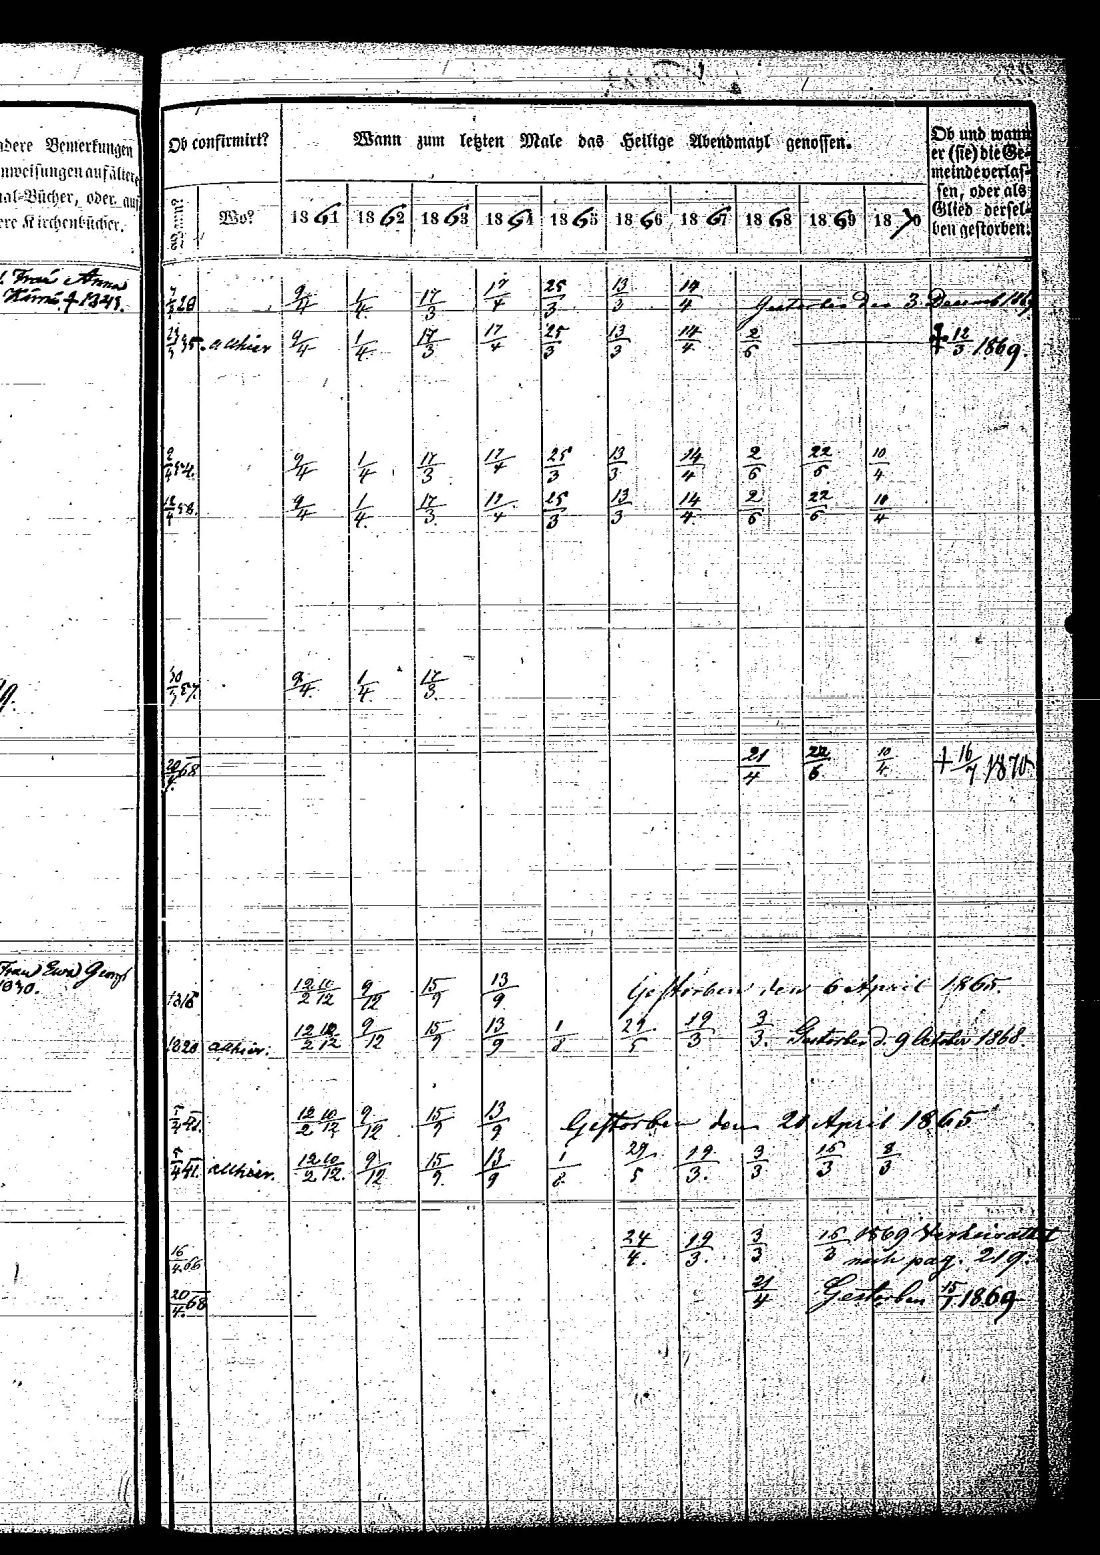 ndere Bemerkungen
nweisungen auf ältere
nal-Bücher, oder auf
ere Kirchenbücher.
Ob confirmirt?
Wann zum letzten Male das Heilige Abendmahl genossen.
Ob und wann
er (sie) die Ge-
meinde verlas-
sen, oder als
Glied dersel-
ben gestorben.
Wann? Wo? 1861 1862 1863 1864 1865 1866 1867 1868 1869 1870
Frau Anna
† 1841.
28 9/4 1/4 17/3 17/4 25/3 13/3 14/4 Gestorben den 3. Decemb 186
35. allhier 9/4 1/4 17/3 17/4 25/3 13/3 14/4 2/6 † 12/3 1869.
54. 9/4 1/4 17/3 17/4 25/3 13/3 14/4 2/6 22/6 10/4
58. 9/4 1/4 17/3 12/4 25/3 13/3 14/4 2/6 22/6 10/4
57. 9/4 1/4 17/3
20/4 68 21/4 22/6 10/4 † 16/7 1870.
Frau Ewa Georgs
1830.
1818 12/2 10/12 9/12 15/9 13/9 Gestorben den 6 April 1865.
1820 allhier. 12/2 10/12 9/12 15/9 13/9 1/8 29/5 19/3 3/3. Gestorben d. 9 October 1868.
41. 12/2 10/12 9/12 15/9 13/9 Gestorben den 20 April 1865
5/4 41. allhier. 12/2 10/12. 9/12 15/9. 13/9 1/8. 29/5 19/3. 3/3 16/3 8/3
16/4 66 24/4. 19/3. 3/3 16/3 1869 Verheirathet
nach pag. 219.
20/4 68 21/4 Gestorben 15/7 1869